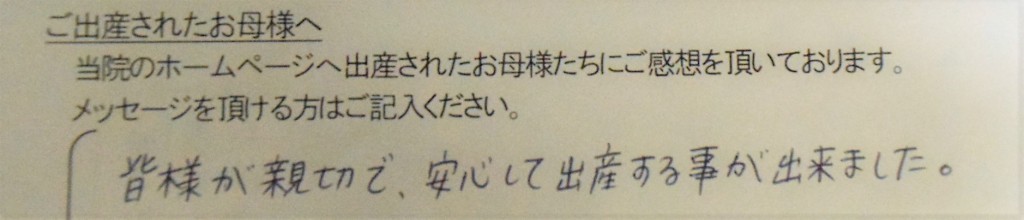 ご出産されたお母様へ
当院のホームページへ出産されたお母様たちにご感想を頂いております。
メッセージを頂ける方はご記入ください。
皆様が親切で、安心して出産する事が出来ました。